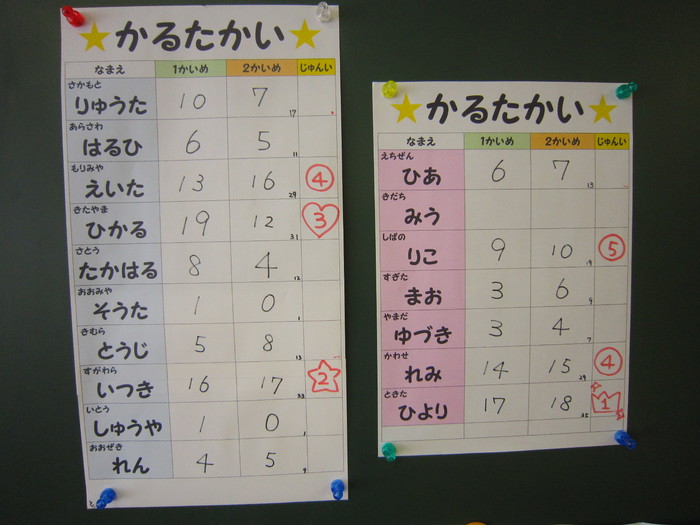 ★かるたかい★
なまえ 1かいめ 2かいめ じゅんい
さかもと
りゅうた 10 7 17
あらさわ
はるひ 6 5 11
もりみや
えいた 13 16 29 4
きたやま
ひかる 19 12 31 3
さとう
たかはる 8 4 12
おおみや
そうた 1 0 1
きむら
とうじ 5 8 13
すがわら
いつき 16 17 33 2
いとう
しゅうや 1 0 1
おおぜき
れん 4 5 9
★かるたかい★
なまえ 1かいめ 2かいめ じゅんい
えちぜん
ひあ 6 7 13
きだち
みう
しばの
りこ 9 10 19 5
すぎた
まお 3 6 9
やまだ
ゆづき 3 4 7
かわせ
れみ 14 15 29 4
ときた
ひより 17 18 35 1